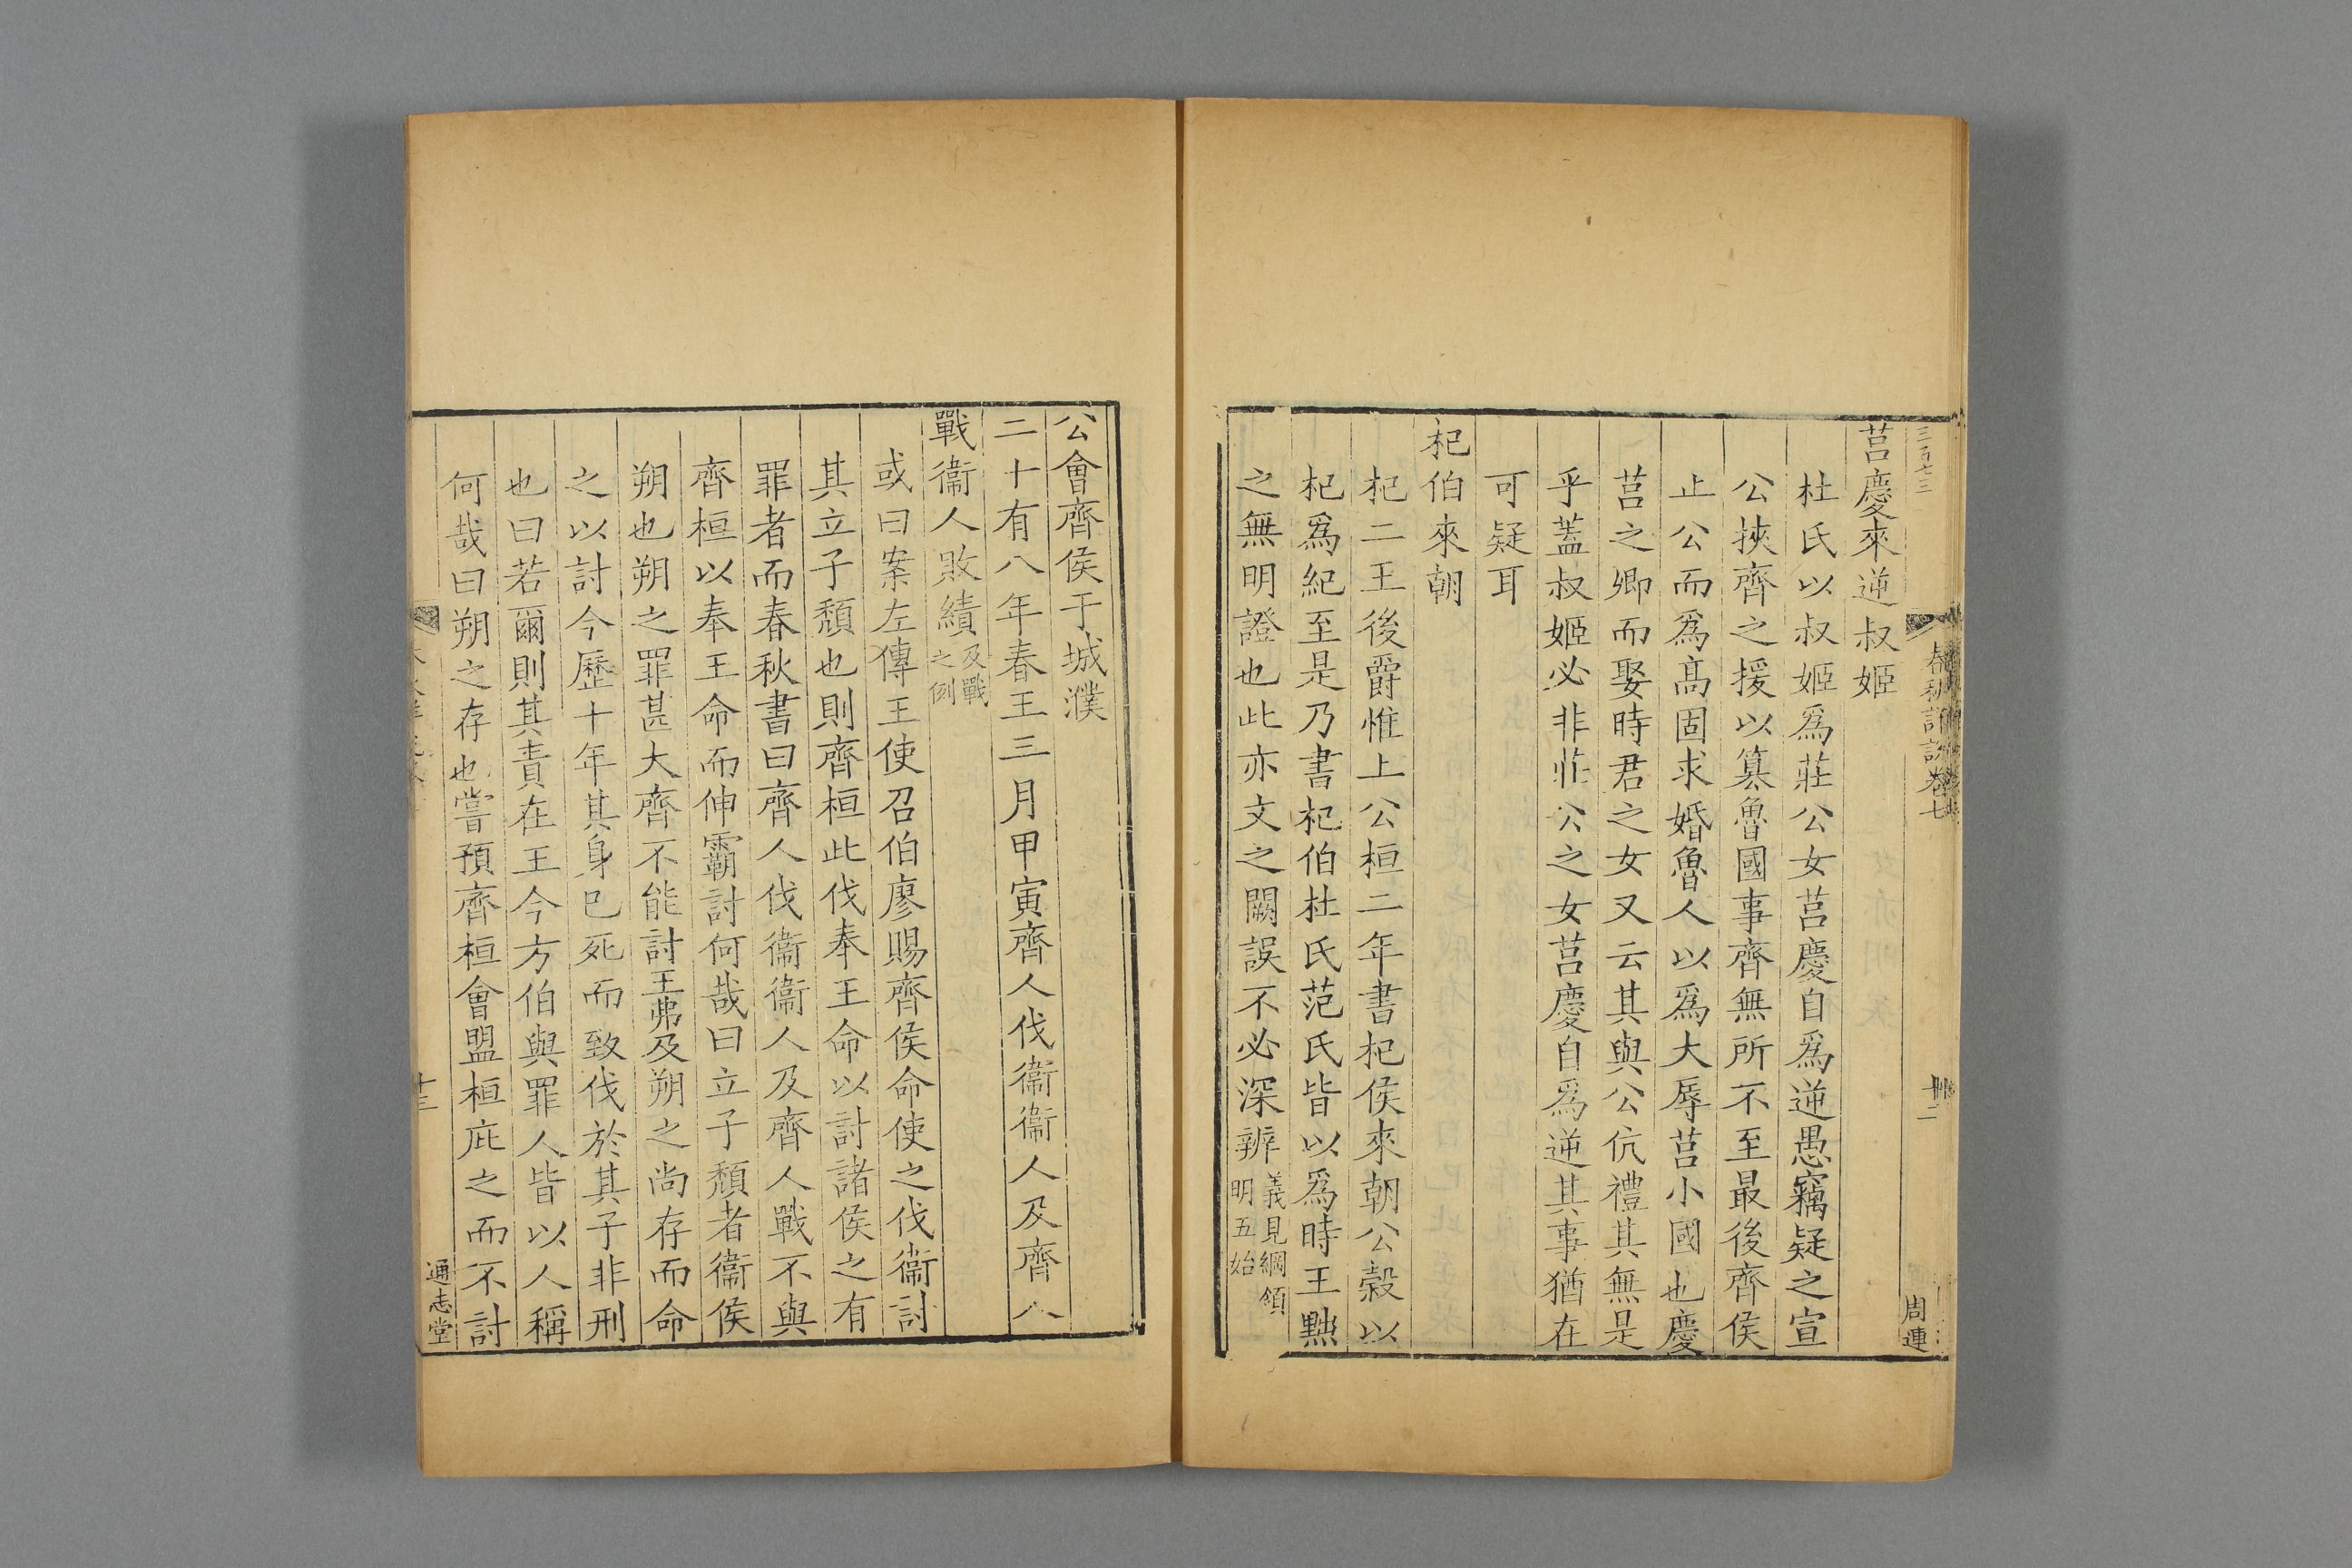 三百七三
莒慶來逆叔姬
杜氏以叔姬爲莊公女莒慶自爲逆愚竊疑之宣
公挾齊之援以篡魯國事齊無所不至最後齊侯
止公而爲髙固求婚魯人以爲大辱莒小國也慶
莒之卿而娶時君之女又云其與公伉禮其無是
乎蓋叔姬必非莊公之女莒慶自爲逆其事猶在
可疑耳
杞伯來朝
杞二王後爵惟上公桓二年書杞侯來朝公榖以
杞爲紀至是乃書杞伯杜氏范氏皆以爲時王黜
之無明證也此亦文之闕誤不必深辨義見綱領
明五始
周連
公會齊侯于城濮
二十有八年春王三月甲寅齊人伐衞衞人及齊人
戰衞人敗績及戰
之例
或曰案左傳王使召伯廖賜齊侯命使之伐衞討
其立子頽也則齊桓此伐奉王命以討諸侯之有
罪者而春秋書曰齊人伐衞衞人及齊人戰不與
齊桓以奉王命而伸霸討何哉曰立子頽者衞侯
朔也朔之罪甚大齊不能討王弗及朔之尚存而命
之以討今歷十年其身已死而致伐於其子非刑
也曰若爾則其責在王今方伯與罪人皆以人稱
何哉曰朔之存也嘗預齊桓會盟桓庇之而不討
十三
通志堂